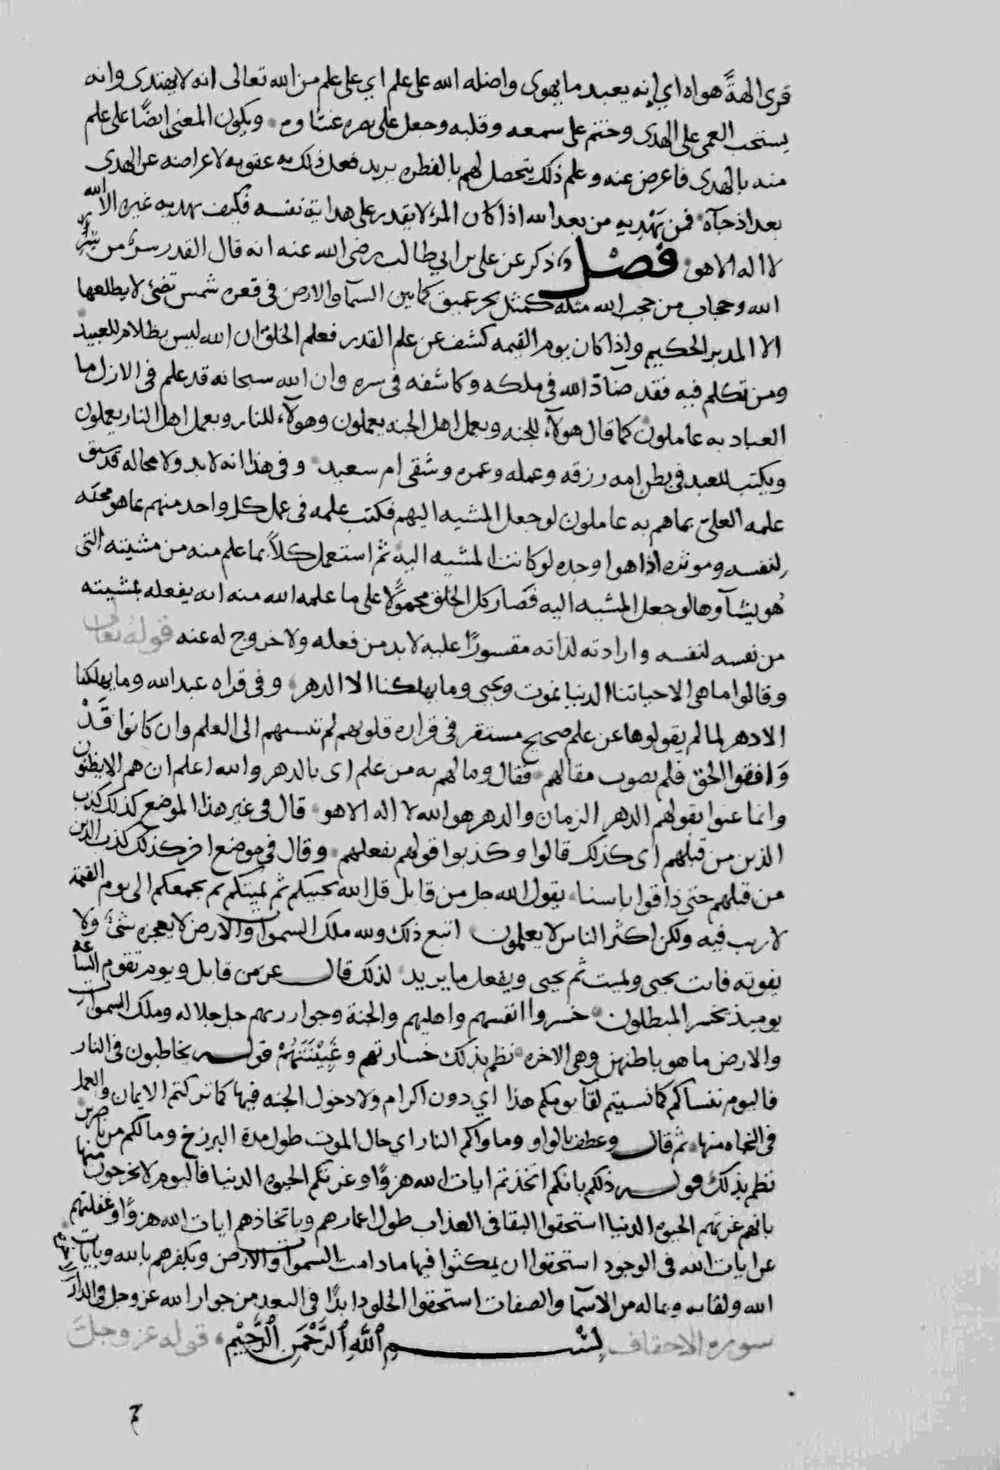 قرى الهةً هواه اي إنه يعبد ما يهوى واضله الله على علم اي على علم من الله تعالى انه لا يهتدى وانه
يستحب العمى على الهدى وختم على سمعه وقلبه وجعل على بصره غشاوه ويكون المعنى ايضًا على علم
منه بالهدى فاعرض عنه وعلم ذلك يتحصل لهم بالفطره يريد فعل ذلك به عقوبه لاعراضه عن الهدى
بعد اذ جآه فمن يَهْدِيهِ من بعد الله اذا كان المرء لا يقدر على هداية نفسه فكيف يهديه غيره الا الله
لا اله الا هو فصل وذكر عن على بن ابي طالب رضى الله عنه انه قال القدر سرٌ من سِرِّ
الله وحجاب من حجب الله مثله كمثل بحر عميق كما بين السمآ والارض في قعره شمس تضئ لا يطلعها
الا المدبر الحكيم واذا كان يوم القيمه كشف عن علم القدر فعلم الخلق ان الله ليس بظلام للعبيد
ومن تكلم فيه فقد ضآدّ الله في ملكه وكاشفه في سره وان الله سبحانه قد علم في الازل ما
العباد به عاملون كما قال هولآء للجنه وبعمل اهل الجنه يعملون وهولآء للنار وبعمل اهل النار يعملون
ويكتب للعبد في بطن امه رزقه وعمله وعمره وشقى ام سعيد وفى هذا انه لا بد ولا محاله قد سبق
علمه العلىّ بما هم به عاملون لو جعل المشيه اليهم فكتب علمه في عمل كل واحد منهم بما هو
لنفسه وموثره اذا هو اوجده لو كانت المشيه اليه ثم استعمل كلاً بما علم منه من مشيته التى
هو يشآوها لو جعل المشيه اليه فصار كل الخلق محمولًا على ما علمه الله منه انه يفعله بمشيته
من نفسه لنفسه وارادته لذاته مقسورًا عليه لا بد من فعله ولا خروج له عنه قوله تعالى
وقالوا ما هي الا حياتنا الدنيا نموت ونحيى وما يهلكنا الا الدهر وفى قراه عبد الله وما يهلكنا
الا دهر لما لم يقولوها عن علم صحيح مستقر في قراره قلوبهم لم ينسبهم الى العلم وان كانوا قَدْ
وَافقوا الحق فلم يصوب مقالهم فقال وما لهم به من علم اى بالدهر والله اعلم ان هم الا يظنون
وانما عنوا بقولهم الدهر الزمان والدهر هو الله لا اله الا هو قال في غير هذا الموضع كذلك كذب
الذين من قبلهم اى كذلك قالوا وكذبوا قولهم بفعلهم وقال في موضع اخر كذلك كذب الذين
من قبلهم حتى ذاقوا باسنا يقول الله جل من قايل قل الله يحييكم ثم يميتكم ثم يجمعكم الى يوم القيمة
لا ريب فيه ولكن اكثر الناس لا يعلمون اتبع ذلك ولله ملك السموات والارض لا يعجزه شئ ولا
يفوته فايت يحيى ويميت ثم يحيى ويفعل ما يريد لذلك قال عز من قايل ويوم تقوم الساعة
يوميذ يخسر المبطلون خسروا انفسهم واهليهم والجنة وجوار ربهم جل جلاله وملك السموات
والارض ما هو باطنهن وهى الاخره نظم بذلك خسارتهم وغَيْبَتَهُمْ قوله يخاطبون في النار
فاليوم ننساكم كما نسيتم لقآ يومكم هذا اي دون اكرام ولا دخول الجنه فيها كما تركتم الايمان والعمل
في النجاه منها ثم قال وعطف بالواو وماواكم النار اي حال الموت طول مدة البرزخ وما لكم من ناصرين
نظم بذلك قوله ذلكم بانكم اتخذتم ايات الله هزوًا وغرتكم الحيوه الدنيا فاليوم لا يخرجون منها
بانهم غرتهم الحيوه الدنيا استحقوا البقا في العذاب طول اعمارهم وباتخاذهم ايات الله هزوًا وغفلتهم
عن ايات الله في الوجود استحقوا ان يمكثوا فيها ما دامت السموات والارض وبكفرهم بالله وبايات
الله ولقايه وبما له من الاسمآ والصفات استحقوا الخلود ابدًا في البعد من جوار الله عز وجل في الدار
سوره الاحقاف بِسْمِ اللَّهِ الرَّحْمَنِ الرَّحِيمِ قوله عز وجلّ